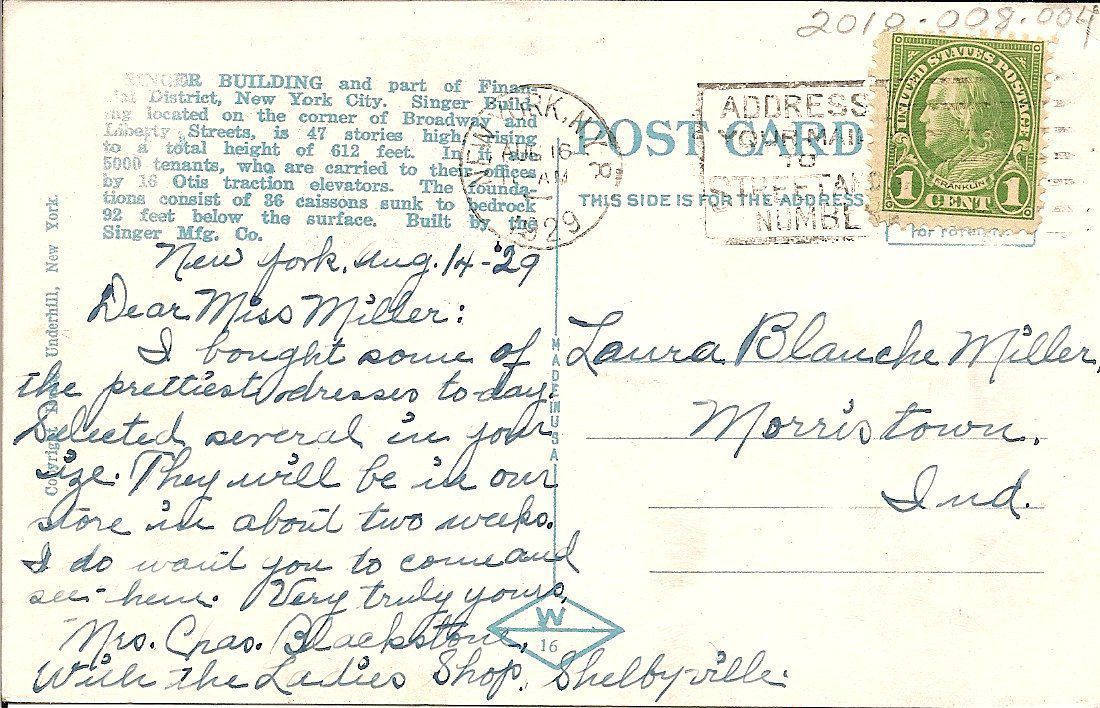 2010.008.004
SINGER BUILDING and part of Finan-
cial District, New York City. Singer Build-
ing located on the corner of Broadway and
Liberty Streets, is 47 stories high, rising
to a total height of 612 feet. In it are
5000 tenants, who are carried to their offices
by 16 Otis traction elevators. The founda-
tions consist of 36 caissons sunk to bedrock
92 feet below the surface. Built by the
Singer Mfg. Co.
Copyright Underhill, New York.
NEW YORK, N.Y.
AUG 16
AM
1929
POST CARD
THIS SIDE IS FOR THE ADDRESS
ADDRESS
YOUR MAIL
TO
STREET AND
NUMBE
UNITED STATES POSTAGE
FRANKLIN
1 CENT 1
for foreign
New York, Aug. 14-'29
Dear Miss Miller:
I bought some of
the prettiest dresses to-day.
Selected several in your
size. They will be in our
store in about two weeks.
I do want you to come and
see them. Very truly yours,
Mrs. Chas. Blackstone,
With the Ladies Shop, Shelbyville.
MADE IN USA
W
16
Laura Blanche Miller,
Morristown,
Ind.